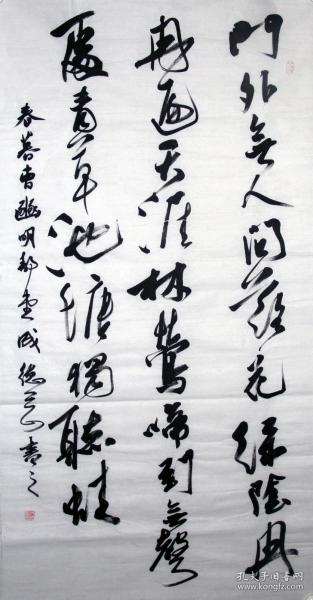 門外無人問落花綠陰冉
冉遍天涯林鶯啼到無聲
處青草池塘獨聽蛙
春暮曹豳明都堂成德書之
孔夫子旧书网